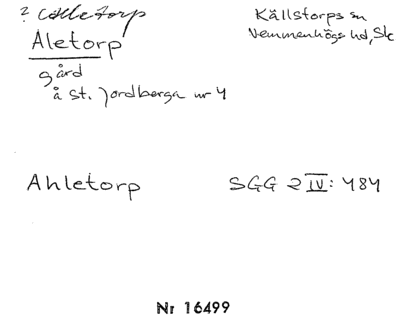 ? Alletorp
Aletorp
Källstorps sn
Vemmenhögs hd, Sk
gård
å St. Jordberga nr 4
Ahletorp
SGG 2 IV: 484
Nr 16499